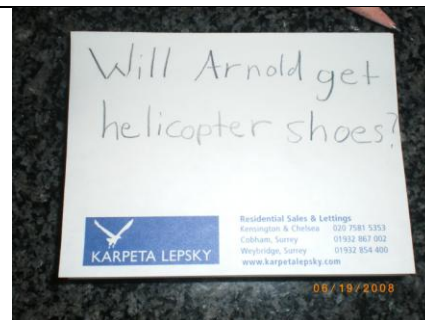 Will Arnold get
helicopter shoes?
KARPETA LEPSKY
Residential Sales & Lettings
Kensington & Chelsea 020 7581 5353
Cobham, Surrey 01932 867 002
Weybridge, Surrey 01932 854 400
www.karpetalepsky.com
06/19/2008